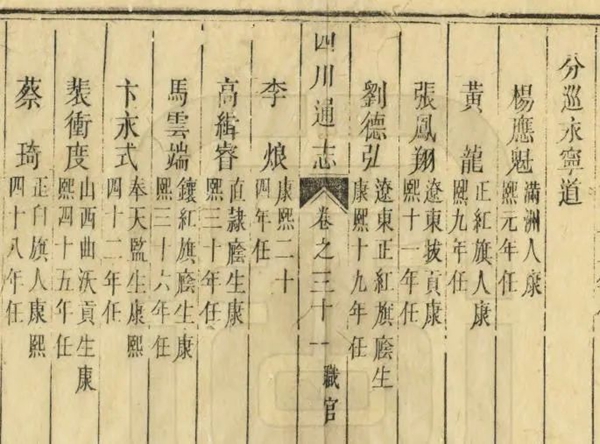 分巡永寧道
楊應魁 滿洲人康
熙元年任
黃龍 正紅旗人康
熙九年任
張鳳翔 遼東拔貢康
熙十一年任
劉德弘 遼東正紅旗廕生
康熙十九年任
四川通志 卷之三十一 職官
李烺 康熙二十
四年任
高緝睿 直隷廕生康
熙三十年任
馬雲端 鑲紅旗廕生康
熙三十六年任
卞永式 奉天監生康熙
四十二年任
裴衝度 山西曲沃貢生康
熙四十五年任
蔡琦 正白旗人康熙
四十八年任